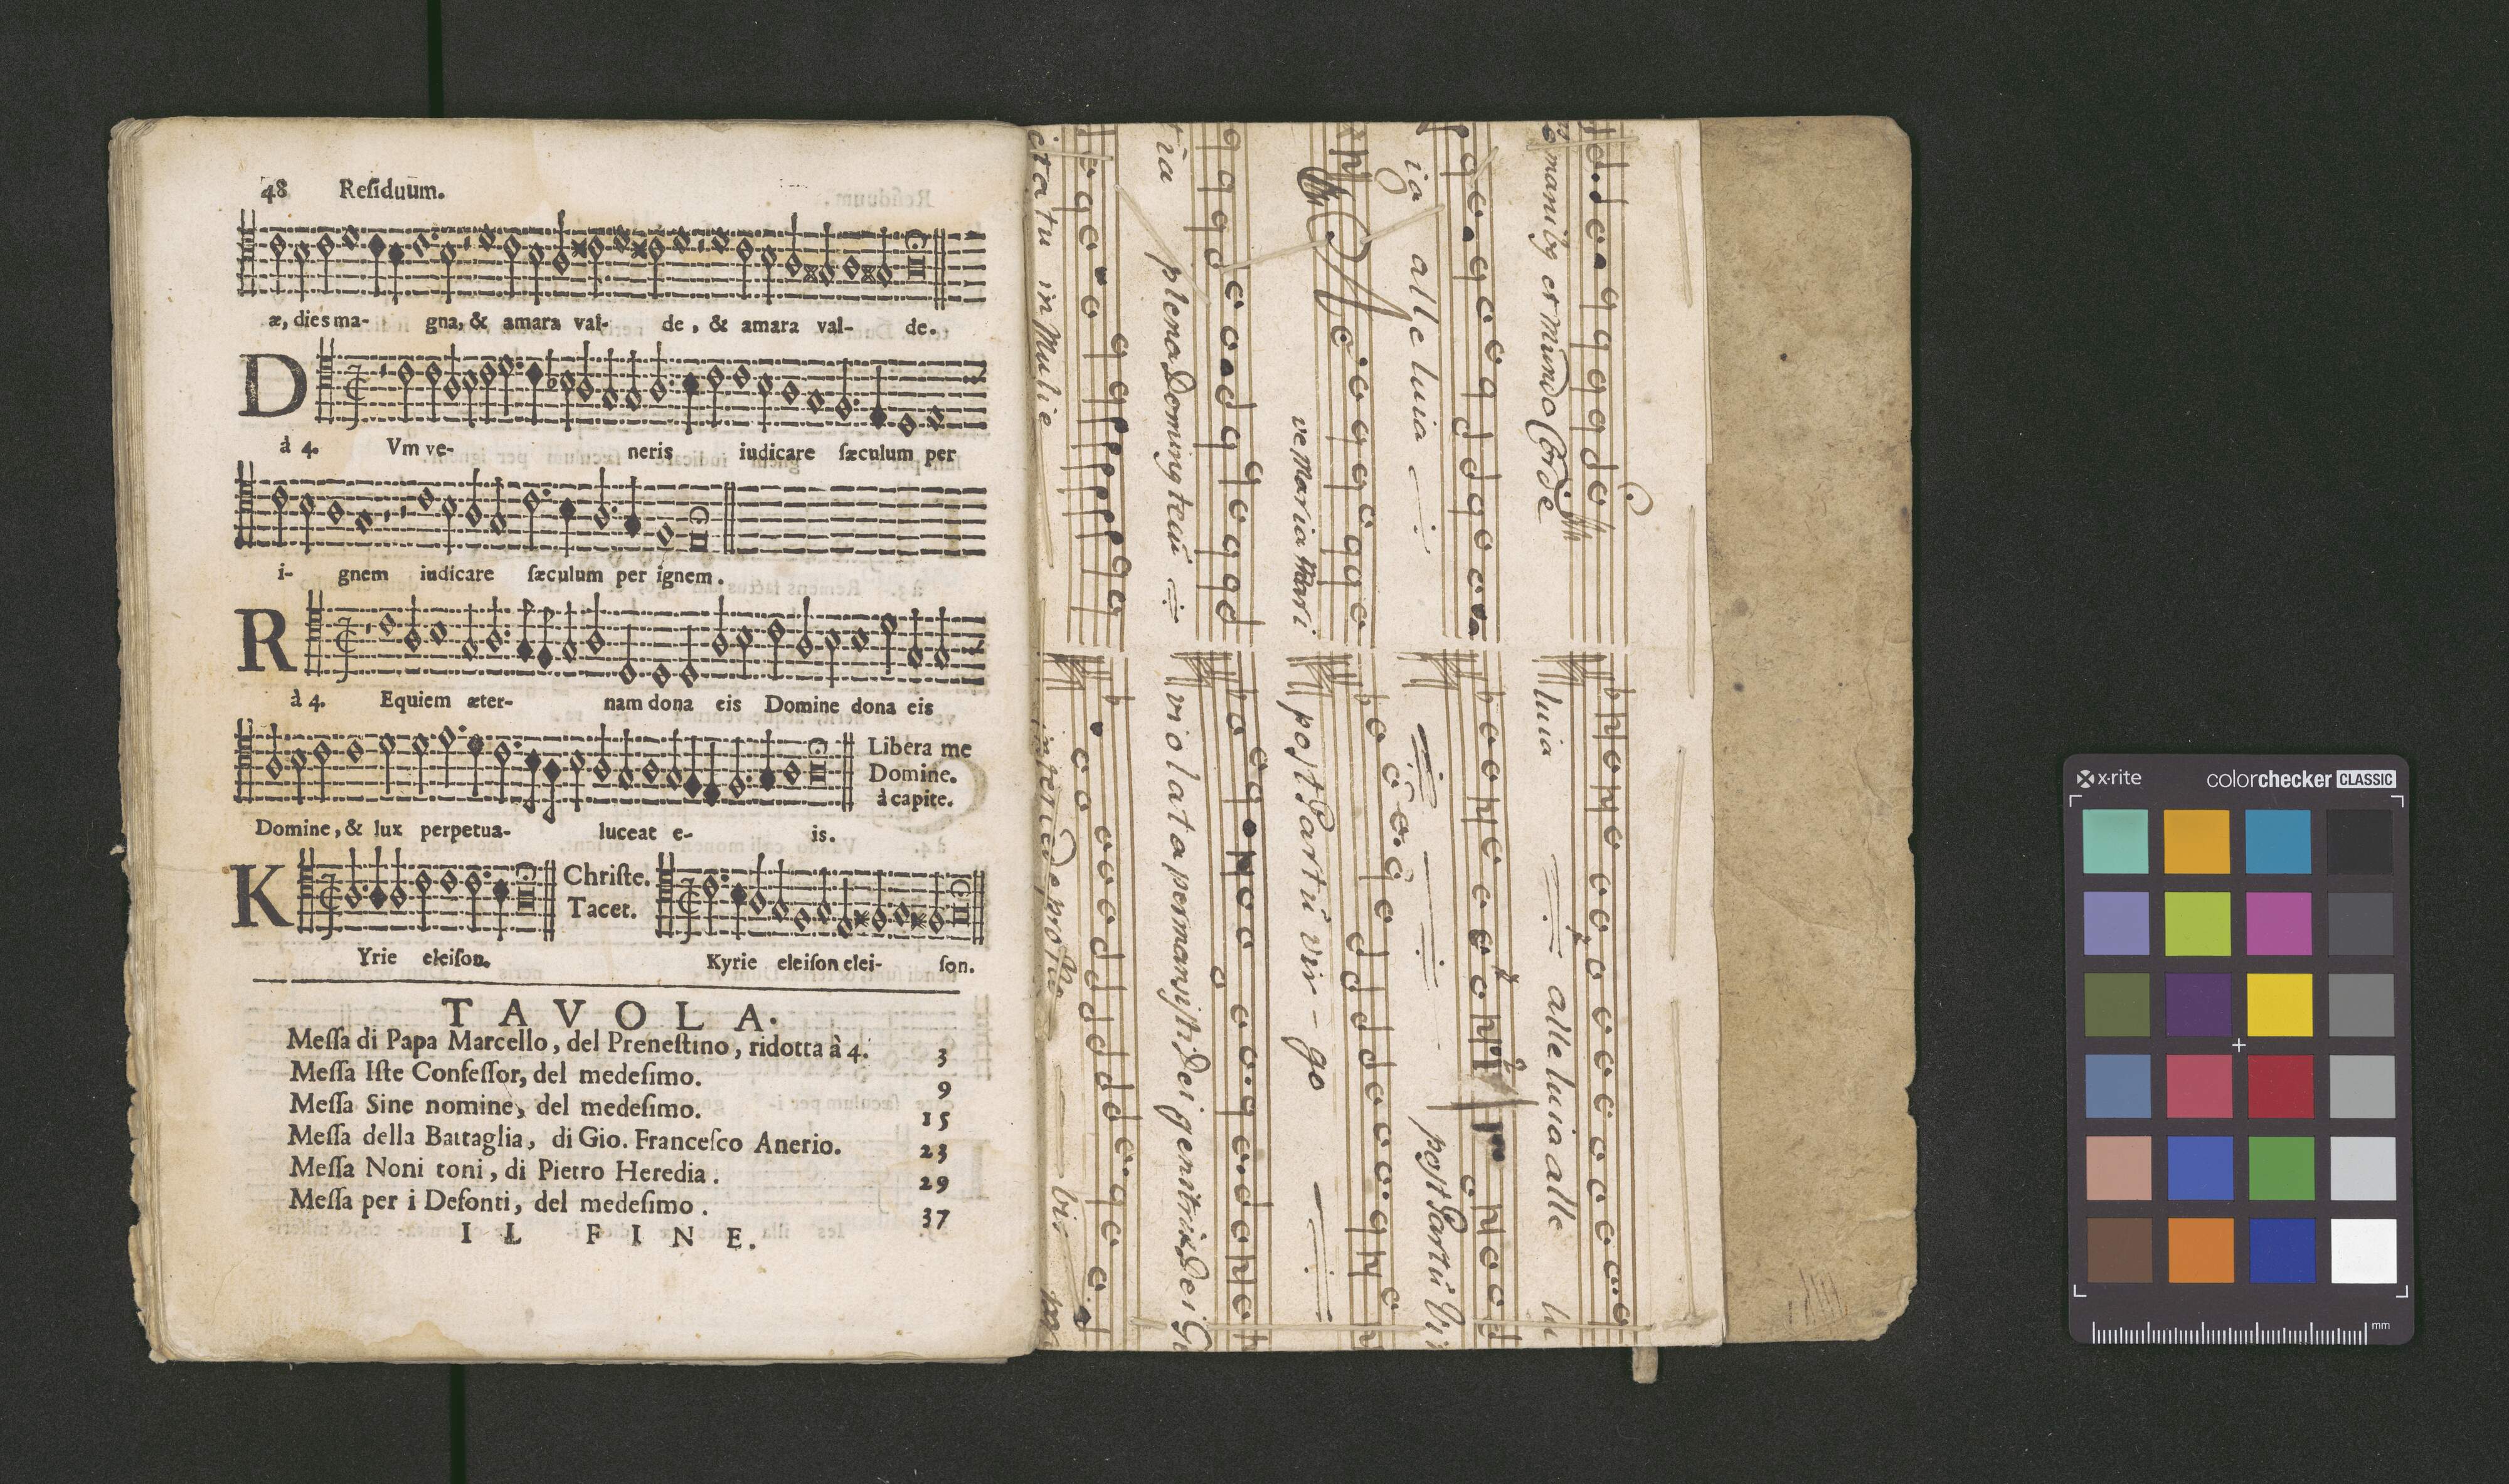 48 Reſiduum.
æ, dies ma- gna, & amara val- de, & amara val- de.
D
à 4. Vm ve- neris iudicare ſæculum per
i- gnem iudicare ſæculum per ignem.
R
à 4. Equiem æter- nam dona eis Domine dona eis
Libera me
Domine.
à capite.
Domine, & lux perpetua- luceat e- is.
K
Chriſte.
Tacet.
Yrie eleiſon. Kyrie eleiſon elei- ſon.
TAVOLA.
Meſſa di Papa Marcello, del Preneſtino, ridotta à 4. 3
Meſſa Iſte Confeſſor, del medeſimo. 9
Meſſa Sine nomine, del medeſimo. 15
Meſſa della Battaglia, di Gio. Franceſco Anerio. 23
Meſſa Noni toni, di Pietro Heredia. 29
Meſſa per i Defonti, del medeſimo. 37
IL FINE.
manibus et mundo Corde
luia alleluia alle lu
ia alleluia
post Partū Vir
ve maria
post Partū vir - go
tia plena Dominus tecū
violata permansisti Dei genitrix Dei G
in Mulie
x-rite colorchecker CLASSIC
mm